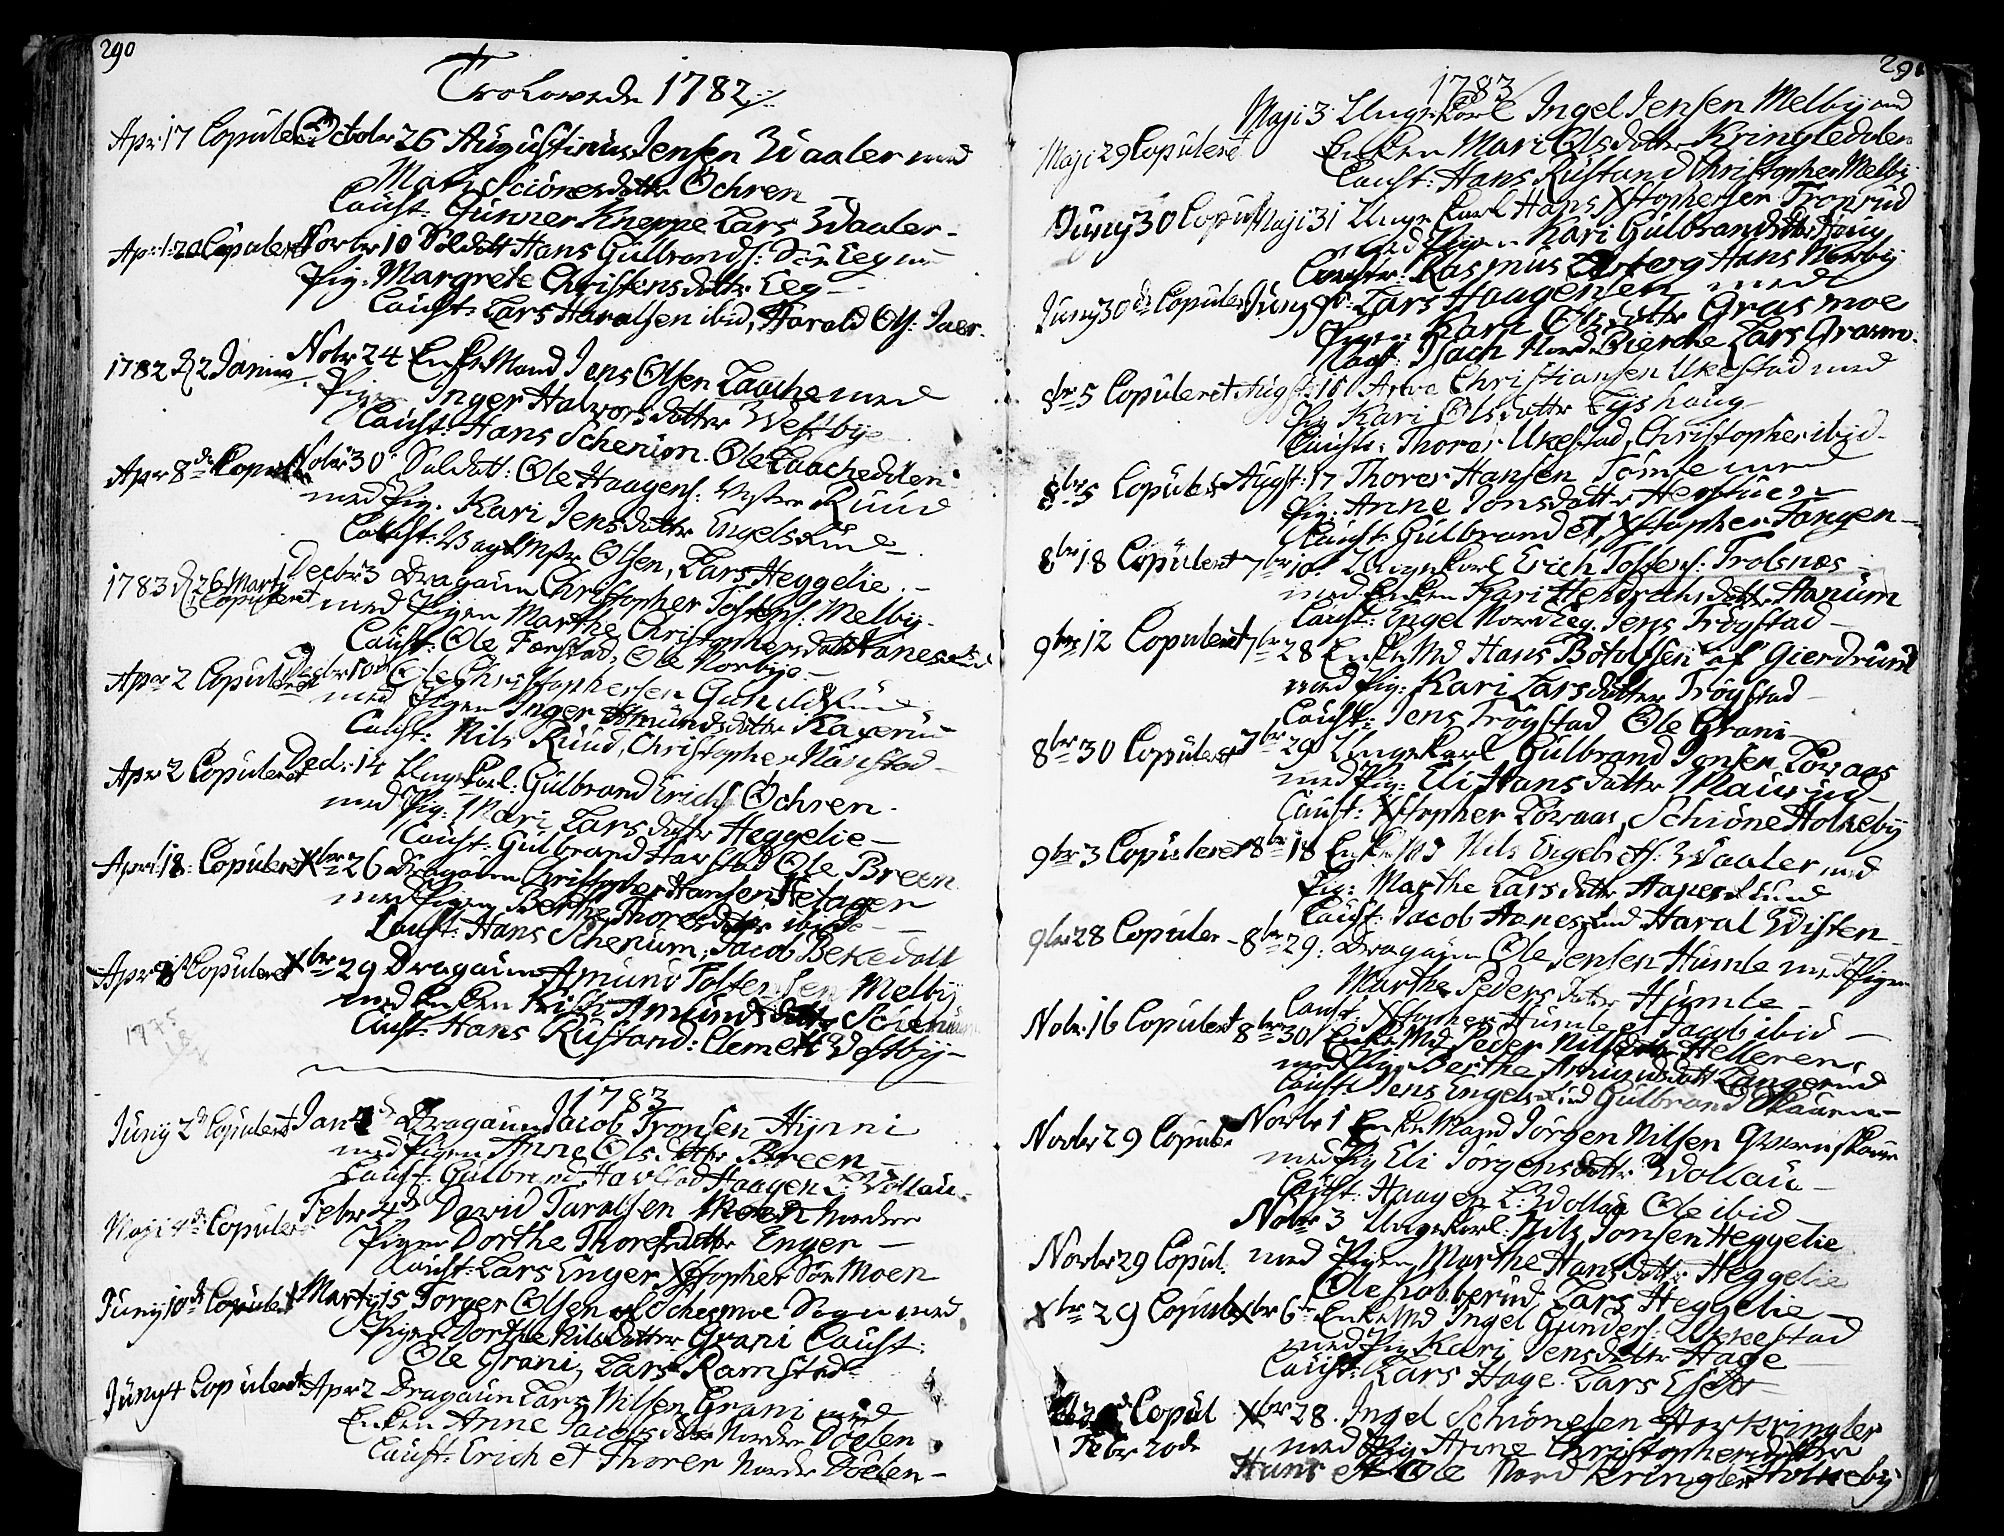 290
Trolowede 1782
Apr: 17 Copuleret October 26 Augustinus Jensen Waaler med
Mari Sciönesdatter Ochren
Caust: Gunner Kneppe Lars Waaler
Apr: 20 Copuleret Novbr 10 Soldatt Hans Gulbrands: Eeg
Pig: Margrete Christensdatter Eeg
Caust: Lars Haralsen ibid, Harald Ols: Jaer
1782 d 2 Novbr 24 Enke Mand Jens Olsen Laache med
Pigen Inger Halvorsdatter Westbye
Caust: Hans Scherum. Ole Laachedelen
Apr 8de Copul Nobr 30 Soldatt: Ole Haagens: Ruud
med Pig: Kari Jensdatter Engelslund
Caust: Olsen, Lars Heggelie
1783 d 26 Marti Copuleret Decbr 3 Dragoun Christopher Tostens: Melby
med Pigen Marthe Christophersdatt Haneslund
Caust: Ole Forstad, Ole Norbye
Apr 2 Copuleret Decbr 10 Ole Christophersen Gundslund
med Pigen Inger Amundsdatter Raverud
Caust: Nils Ruud, Christopher Narstad
Apr 2 Copuleret Dec: 14 Ungekarl: Gulbrand Erichs Ochren
med Pig: Mari Larsdatter Heggelie
Caust: Gulbrand Harstad Ole Breen
April 18 Copuleret Xbr 26 Dragoun Christopher Hansen Hetager
med Pigen Berthe Thoresdatter ibid
Caust: Hans Scherum, Jacob Bekedall
Apr 8 Copuleret Xbr 29 Dragoun Amund Tostensen Melby
med Enken Kisti Amundsdatter Scierum
Caust: Hans Rustand: Clemet Westby
1783
Juny 2de Copuleret Jan 4 Dragoun Jacob Tronsen Hynni
med Pigen Anne Olsdatter Breen
Caust: Gulbrand Harstad Haagen L: Wollau
Maji 4de Copuleret Febr 2d David Taralsen Moen Nordre
Pigen Dorthe Thoresdatter Enger
Caust: Lars Enger Xstopher Sør Moen
Juny 10de Copuleret Martij 15 Torger Olsen af Scheesmoe Sogn med
Pigen Dorthe Nilsdatter Grani Caust:
Ole Grani, Lars Ramstad
Juny 4 Copuleret Apr 2 Dragoun Lars Nilsen Grani med
Enken Anne Jacobsdatter Nordre Döelen
Caust: Erich et Thorer Nordre Döelen
291
1783
Maji 29 Copuleret Maji 3 Ungekarl Ingel Jensen Melby med
Enken Mari Olsdatter Kringledalen
Caust: Hans Rustand Christopher Melby
Juny 30 Copul Maji 31 Ungekarl Hans Xstophersen Tronrud
med Pigen Kari Gulbrandsdatter Houg
Caust: Rasmus Hans Norby
Juny 30de Copuler Juny Lars Haagensen med
Pigen Karn Olsdatter Grasmoe
Caust: Isach Nord Bierche Lars Grasmo
8br 5 Copuleret August 10 Arve Christiansen Ukestad med
Pig Kari Olsdatter Eyshaug
Caust: Thorer Ukestad, Christopher ibid
8br 5 Copuler August: 17 Thorer Hansen Tömte med
Pig: Anne Jonsdatter Herstuen
Caust: Gulbrand et Xstopher Tangen
8br 18 Copuleret 7br 10 Ungekarl Erich Tostens: Trolsnes
med Enken Kari Hendrichsdatter Hanum
Caust: Engel Nord Eeg. Jens Trøgstad
9br 12 Copuleret 7br 28 Enke Md Hans Botolfsen af Gierdrum
med Pig: Kari Larsdatter Trøgstad
Caust: Jens Trøgstad Ole Grani
8br 30 Copuleret 7br 29 Ungekarl Gulbrand Jonsen Lövaas
med Pig: Eli Hansdatter Maurud
Caust: Xstopher Lövaas, Schiöne Holkeby
9br 3 Copuleret 8br 18 Enke Md Nils Engebrets: Waaler med
Pig: Marthe Larsdatter Haneslund
Caust: Jacob Haneslund Haral Wisten
9br 28 Copuler 8br 29: Dragoun Ole Jensen Humle med Pigen
Marthe Pedersdatter Humle
Caust: Xstopher Humle et Jacob ibid
Nobr: 16 Copuleret 8br 30 Enke Md Peder Nilsen Helleren
med Pige Berthe Amundsdatt Langerud
Caust: Jens Engelslund Gulbrand Skauen
Novbr 29 Copuler Novbr 1 Enke Mand Jörgen Nilsen Quernskoun
med Pig Eli Jorgensdatter Wollau
Caust: Haagen L: Wollau Ole ibid
Novbr 29 Copul: Nobr 3 Ungekarl: Nils Jonsen Heggelie
med Pigen Marthe Hansdatter Heggelie
Ole Robberud, Lars Heggelie
Xbr 29 Copul Xbr 6te Enke Md Ingel Gunders: Ukkestad
med Pig Kari Jensdatter Hage
Caust: Lars Hage. Lars
Copul Xbr 28. Ingel Schiönesen Kringler
Febr 20de med Pig Anne Christophersdatter
Hans et Ole Nord Kringler Holkeby